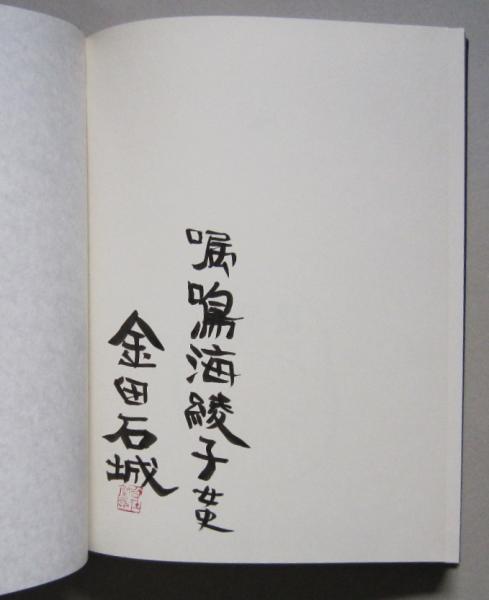 嘱鳴海綾子女史
金田石城